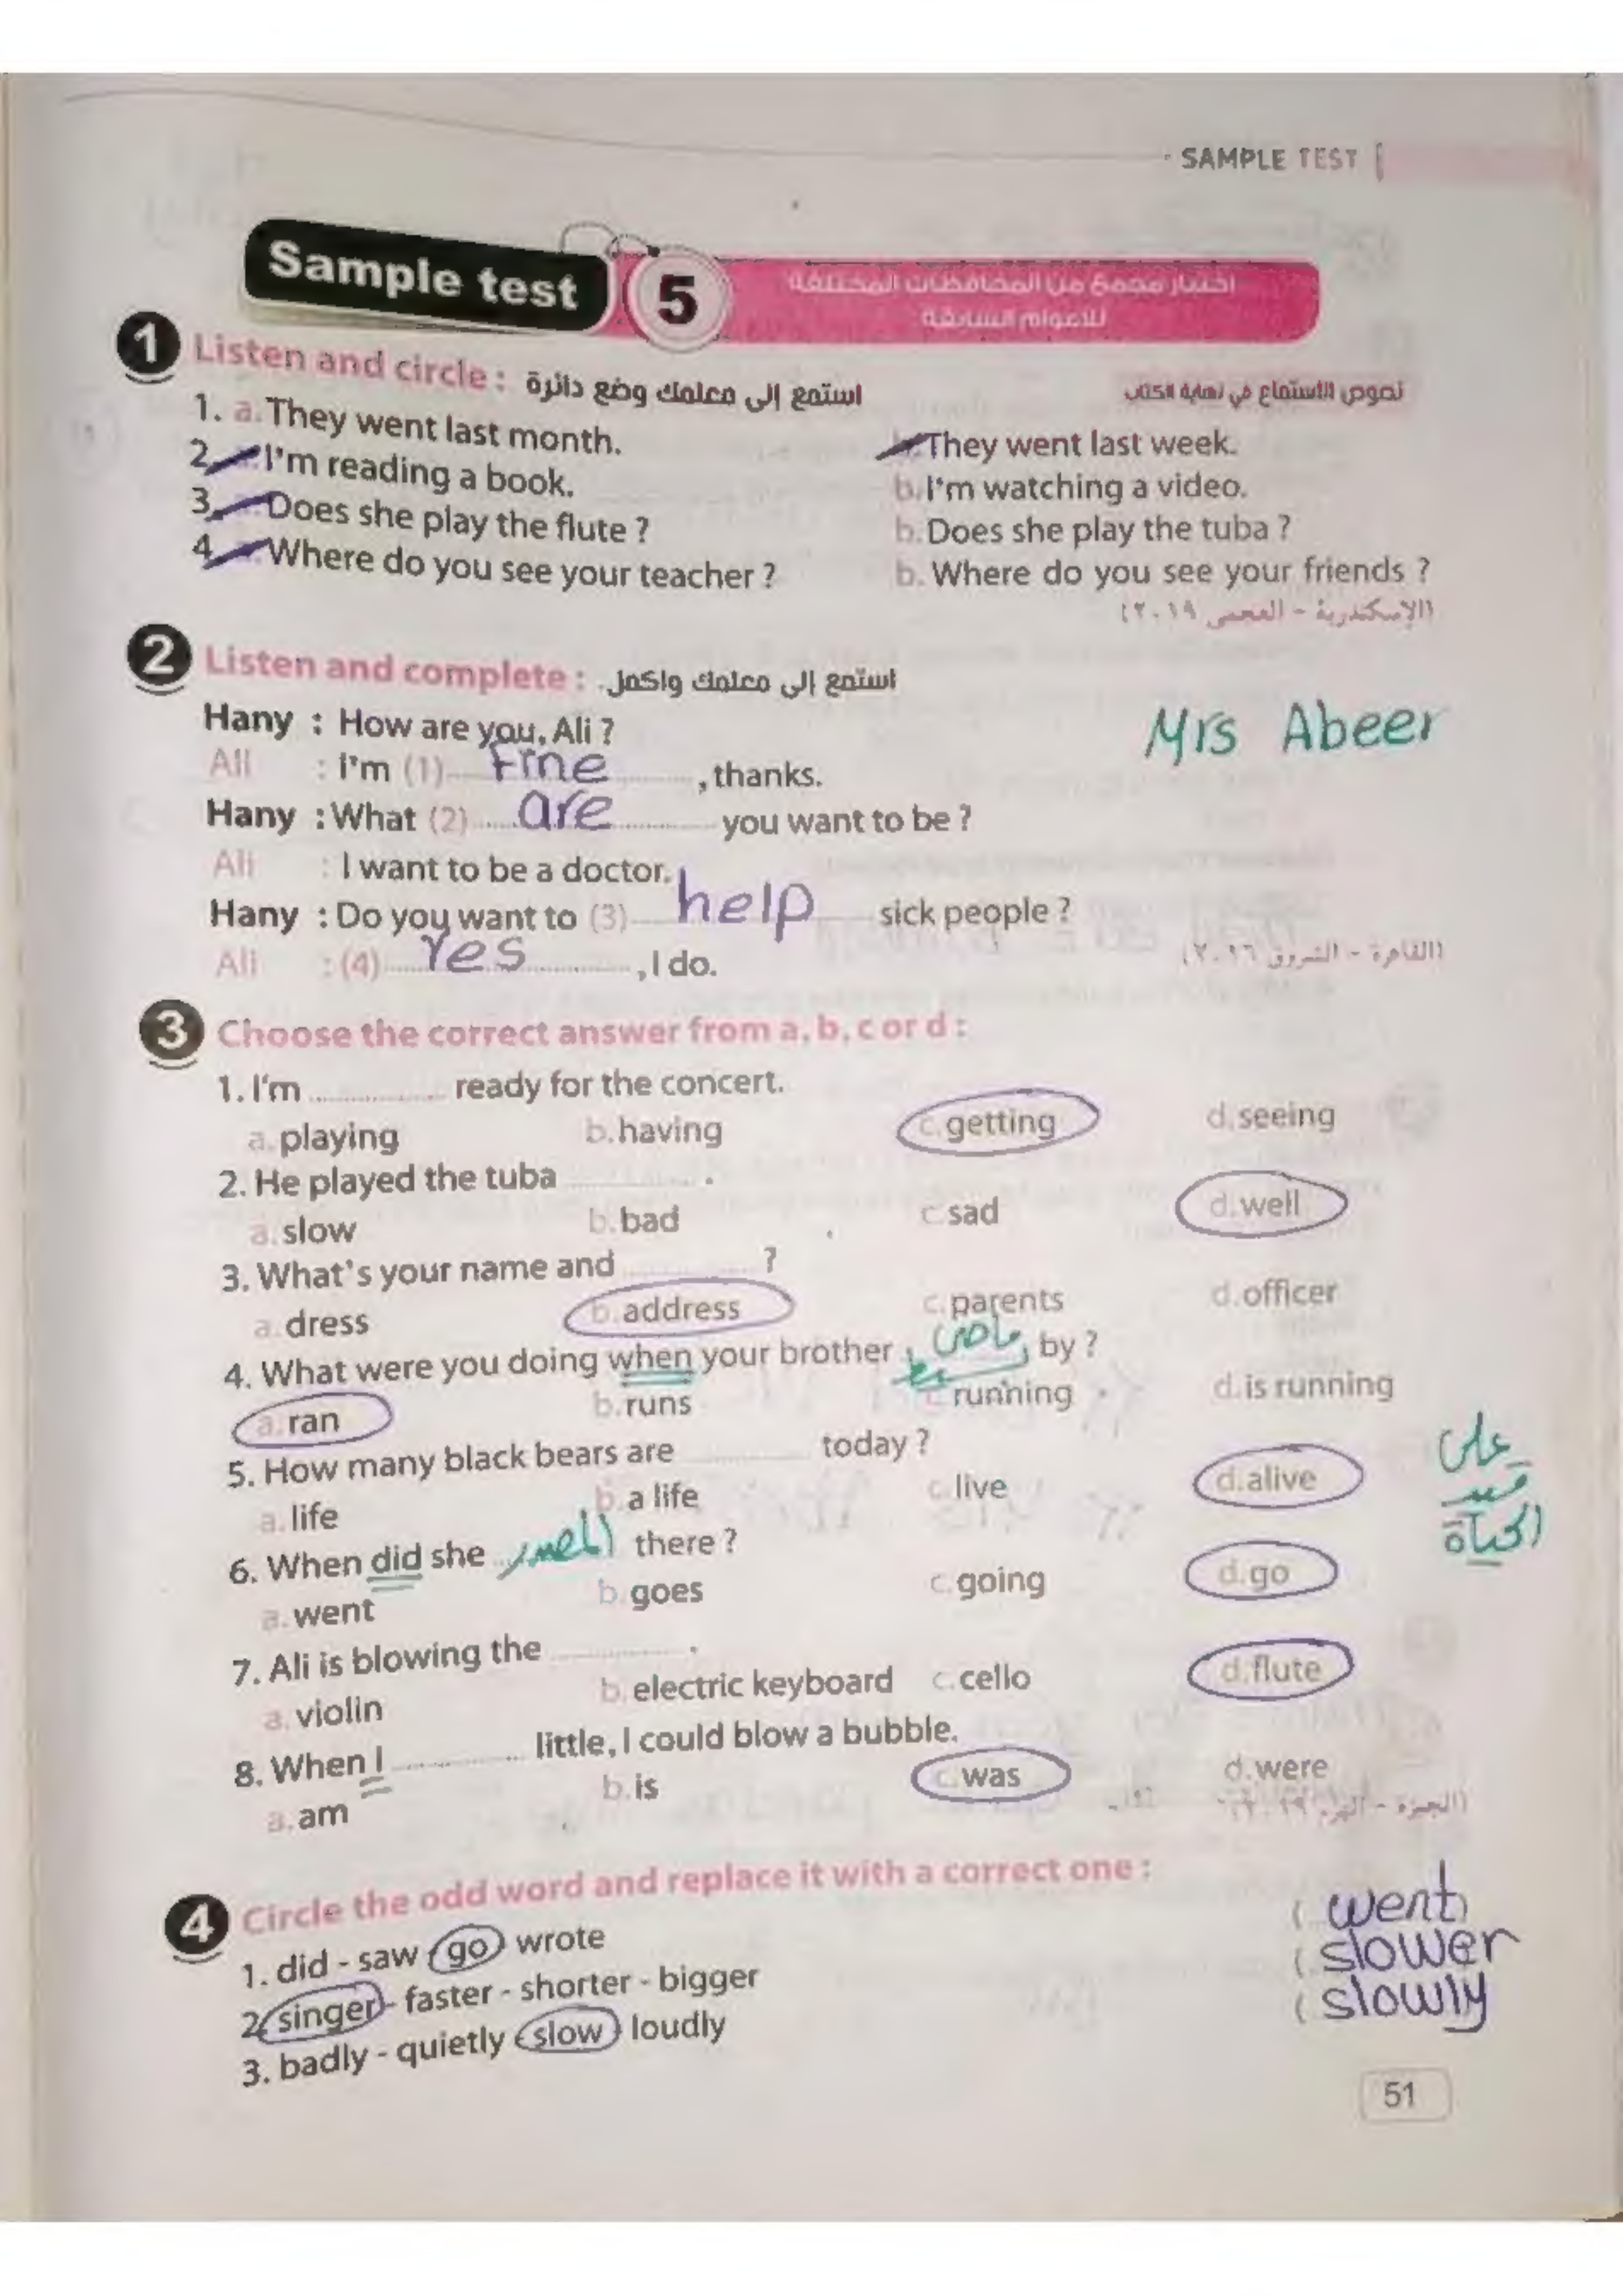 SAMPLE TEST
Sample test 5
اختبار مجمع من المحافظات المختلفة
للأعوام السابقة
1 Listen and circle : استمع إلى معلمك وضع دائرة
نصوص الاستماع في نهاية الكتاب
1. a. They went last month. They went last week.
2. I'm reading a book. b. I'm watching a video.
3. Does she play the flute ? b. Does she play the tuba ?
4. Where do you see your teacher ? b. Where do you see your friends ?
(الإسكندرية - العجمى ٢٠١٩)
2 Listen and complete : استمع إلى معلمك واكمل.
Hany : How are you, Ali ?
Mrs Abeer
Ali : I'm (1) Fine , thanks.
Hany : What (2) are you want to be ?
Ali : I want to be a doctor.
Hany : Do you want to (3) help sick people ?
Ali : (4) Yes , I do.
(القاهرة - الشروق ٢٠١٦)
3 Choose the correct answer from a, b, c or d :
1. I'm .............. ready for the concert.
a. playing b. having c. getting d. seeing
2. He played the tuba .............. .
a. slow b. bad c. sad d. well
3. What's your name and .............. ?
a. dress b. address c. parents d. officer
4. What were you doing when your brother ماضى بسيط by ?
a. ran b. runs c. running d. is running
5. How many black bears are .............. today ?
a. life b. a life c. live d. alive
على
قيد
الحياة
6. When did she المصدر there ?
a. went b. goes c. going d. go
7. Ali is blowing the .............. .
a. violin b. electric keyboard c. cello d. flute
8. When I .............. little, I could blow a bubble.
a. am b. is c. was d. were
(الجيزة - الهرم ٢٠١٩)
4 Circle the odd word and replace it with a correct one :
1. did - saw go wrote ( went )
2. singer - faster - shorter - bigger ( slower
3. badly - quietly slow loudly ( slowly
51